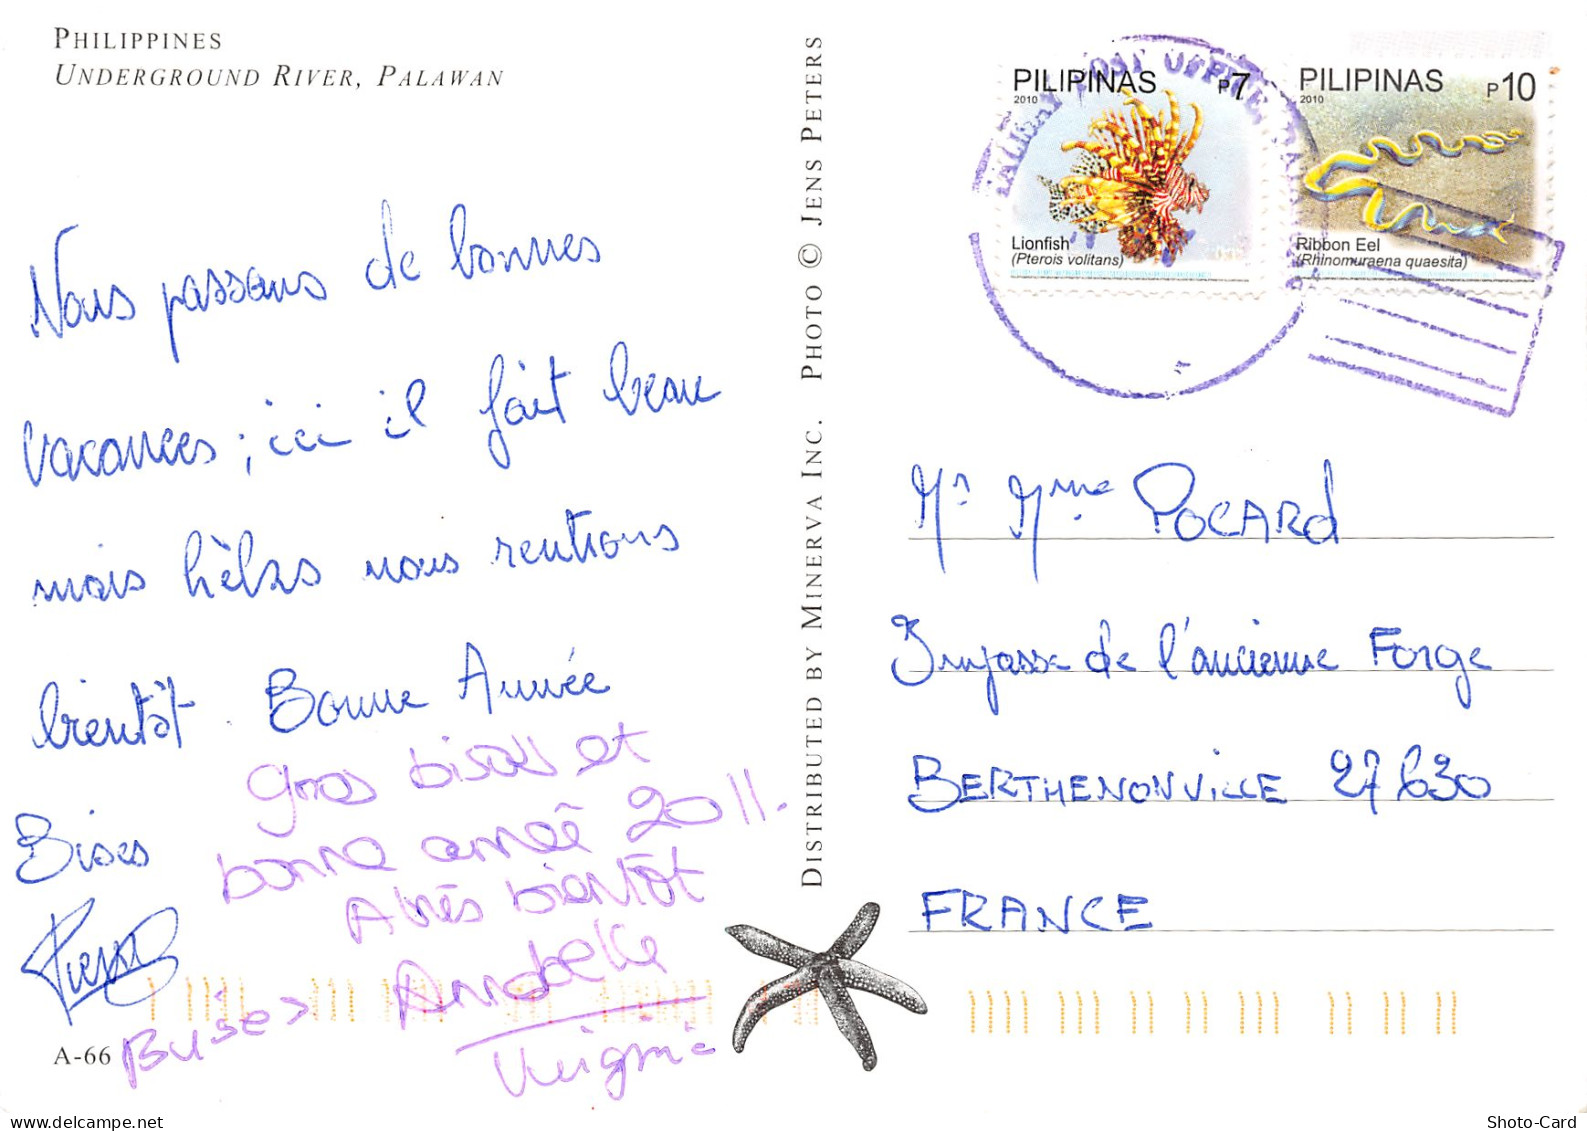 PHILIPPINES
UNDERGROUND RIVER, PALAWAN
Nous passons de bonnes
vacances ; ici il fait beau
mais hèlas nous rentrons
bientôt. Bonne Année
Bises
Pierre
gros bisous et
bonne année 2011.
A très bientôt
Annabelle
Bises
Virginie
A-66
DISTRIBUTED BY MINERVA INC. PHOTO © JENS PETERS
PILIPINAS P7
2010
Lionfish
(Pterois volitans)
PILIPINAS P10
2010
Ribbon Eel
(Rhinomuraena quaesita)
POST OFFICE
Mr Mme POCARd
Impasse de l'ancienne Forge
BERTHENONVILLE 27630
FRANCE
www.delcampe.net
Shoto-Card